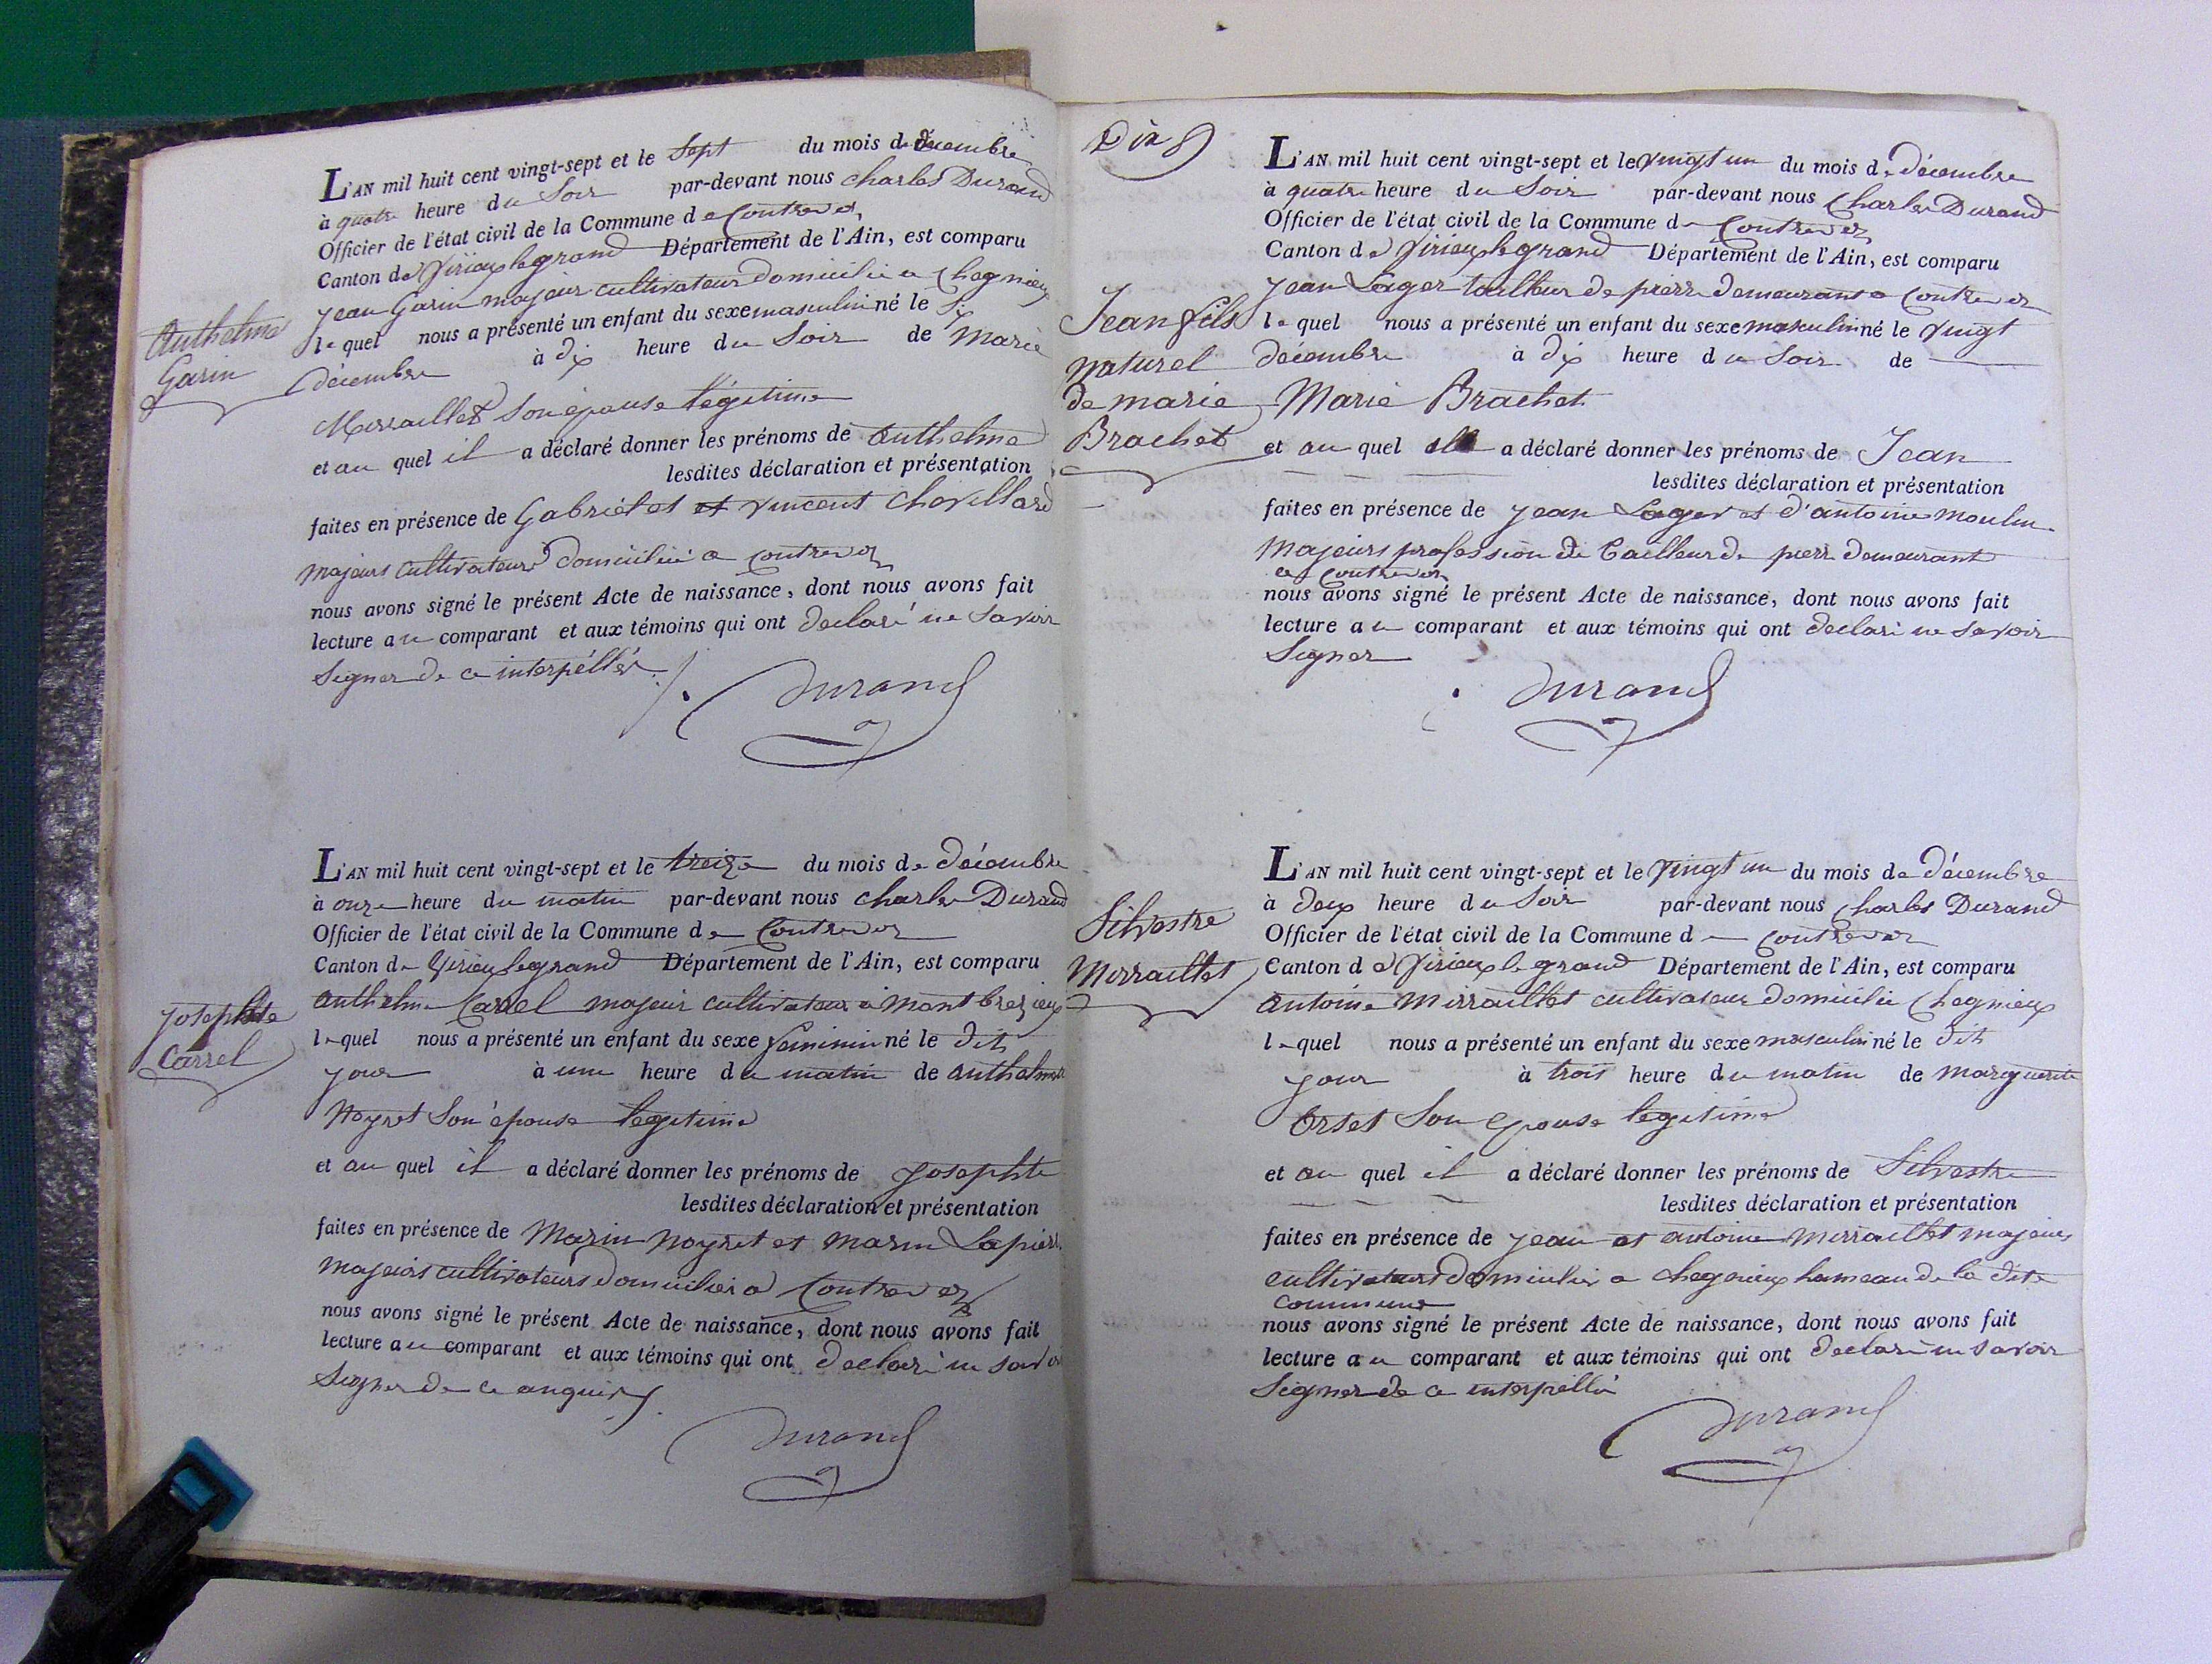 L'AN mil huit cent vingt-sept et le Sept du mois de décembre
à quatre heure du Soir par-devant nous charles Durand
Officier de l'état civil de la Commune de Contrevoz
Canton de Virieux le grand Département de l'Ain, est comparu
jean Garin majeur cultivateur domicilié a Chegnieux
lequel nous a présenté un enfant du sexe masculin né le Six
décembre à dix heure du Soir de Marie
Mirraillet Son épouse légitime
et au quel il a déclaré donner les prénoms de Anthelme
lesdites déclaration et présentation
faites en présence de Gabriel et et vincent Chovillard
majeurs cultivateurs domicilié a Contrevoz
nous avons signé le présent Acte de naissance, dont nous avons fait
lecture au comparant et aux témoins qui ont declaré ne Savoir
Signer de ce interpéllés
Durand
Anthelme
Garin
L'AN mil huit cent vingt-sept et le treize du mois de décembre
à onze heure du matin par-devant nous charles Durand
Officier de l'état civil de la Commune de Contrevoz
Canton de Virieux le grand Département de l'Ain, est comparu
anthelme Carrel majeur cultivateur a montbrezieux
lequel nous a présenté un enfant du sexe feminin né le dit
jour à une heure du matin de anthelmette
Noyret Son épouse legitime
et au quel il a déclaré donner les prénoms de josephte
lesdites déclaration et présentation
faites en présence de Marin Noyret et marin Lapierre
majeurs cultivateurs domiciliés a Contrevoz
nous avons signé le présent Acte de naissance, dont nous avons fait
lecture au comparant et aux témoins qui ont declaré ne savoir
Signer de ce anquis
Durand
josephte
Carrel
Dix
L'AN mil huit cent vingt-sept et le vingt un du mois de décembre
à quatre heure du Soir par-devant nous Charles Durand
Officier de l'état civil de la Commune de Contrevoz
Canton de Virieux le grand Département de l'Ain, est comparu
jean Lager tailleur de pierre demeurant a Contrevoz
lequel nous a présenté un enfant du sexe masculin né le vingt
décembre à dix heure du Soir de
Marie Brachet
et au quel a déclaré donner les prénoms de Jean
lesdites déclaration et présentation
faites en présence de jean Lager et d'antoine moulin
majeurs profession de tailleur de pierr demeurant
a Contrevoz
nous avons signé le présent Acte de naissance, dont nous avons fait
lecture au comparant et aux témoins qui ont declaré ne Savoir
Signer
Durand
Jean fils
naturel
de marie
Brachet
L'AN mil huit cent vingt-sept et le vingt un du mois de décembre
à deux heure du Soir par-devant nous Charles Durand
Officier de l'état civil de la Commune de Contrevoz
Canton de Virieux le grand Département de l'Ain, est comparu
antoine Mirraillet cultivateur domicilié Chegnieux
lequel nous a présenté un enfant du sexe masculin né le dit
jour à trois heure du matin de marguerite
Orset Son epouse legitime
et au quel il a déclaré donner les prénoms de Silvestre
lesdites déclaration et présentation
faites en présence de jean et antoine Mirraillet majeurs
cultivateurs domicilié a chegnieux hameau de la dite
commune
nous avons signé le présent Acte de naissance, dont nous avons fait
lecture au comparant et aux témoins qui ont declaré ne savoir
Signer de ce interpellé
Durand
Silvestre
Mirraillet